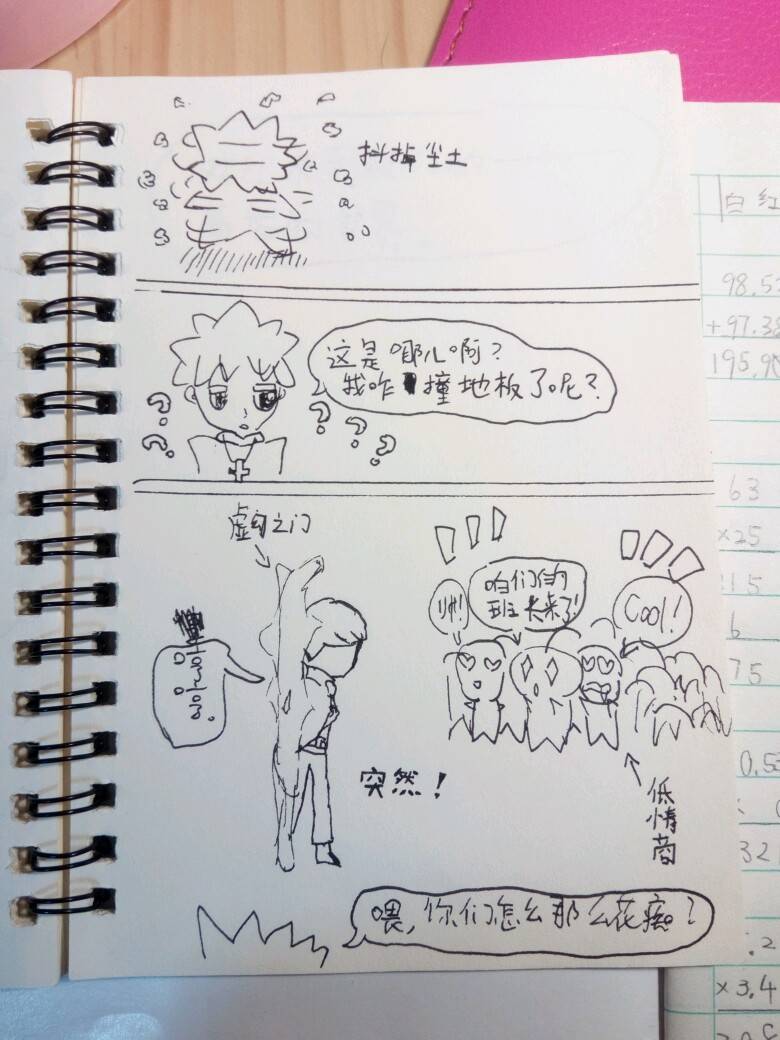 抖掉尘土
这是哪儿啊?
我咋撞地板了呢?
虚幻之门
帅!
咱们的
班长来了!
Cool!
突然!
低情商
喂,你们怎么那么花痴?
白 红
98.5
+97.38
195.9
63
×25
315
6
75
0.5
32
.2
×3.4